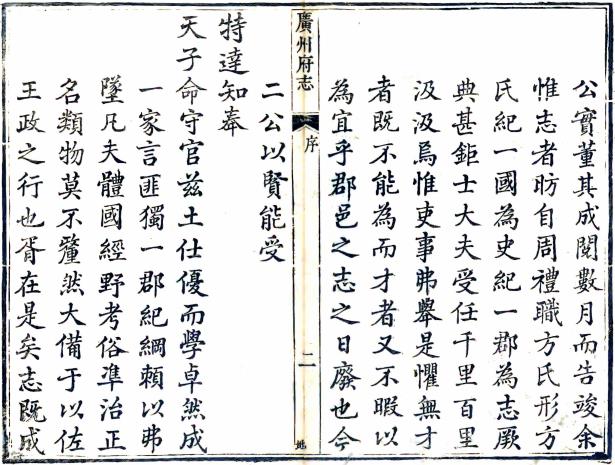 公實董其成閱數月而告竣余
惟志者昉自周禮職方氏形方
氏紀一國為史紀一郡為志厥
典甚鉅士大夫受任千里百里
汲汲焉惟吏事弗舉是懼無才
者既不能為而才者又不暇以
為宜乎郡邑之志之日廢也今
廣州府志
序
二
二公以賢能受
特達知奉
天子命守官茲土仕優而學卓然成
一家言匪獨一郡紀綱賴以弗
墜凡夫體國經野考俗凖治正
名類物莫不釐然大備于以佐
王政之行也胥在是矣志既成